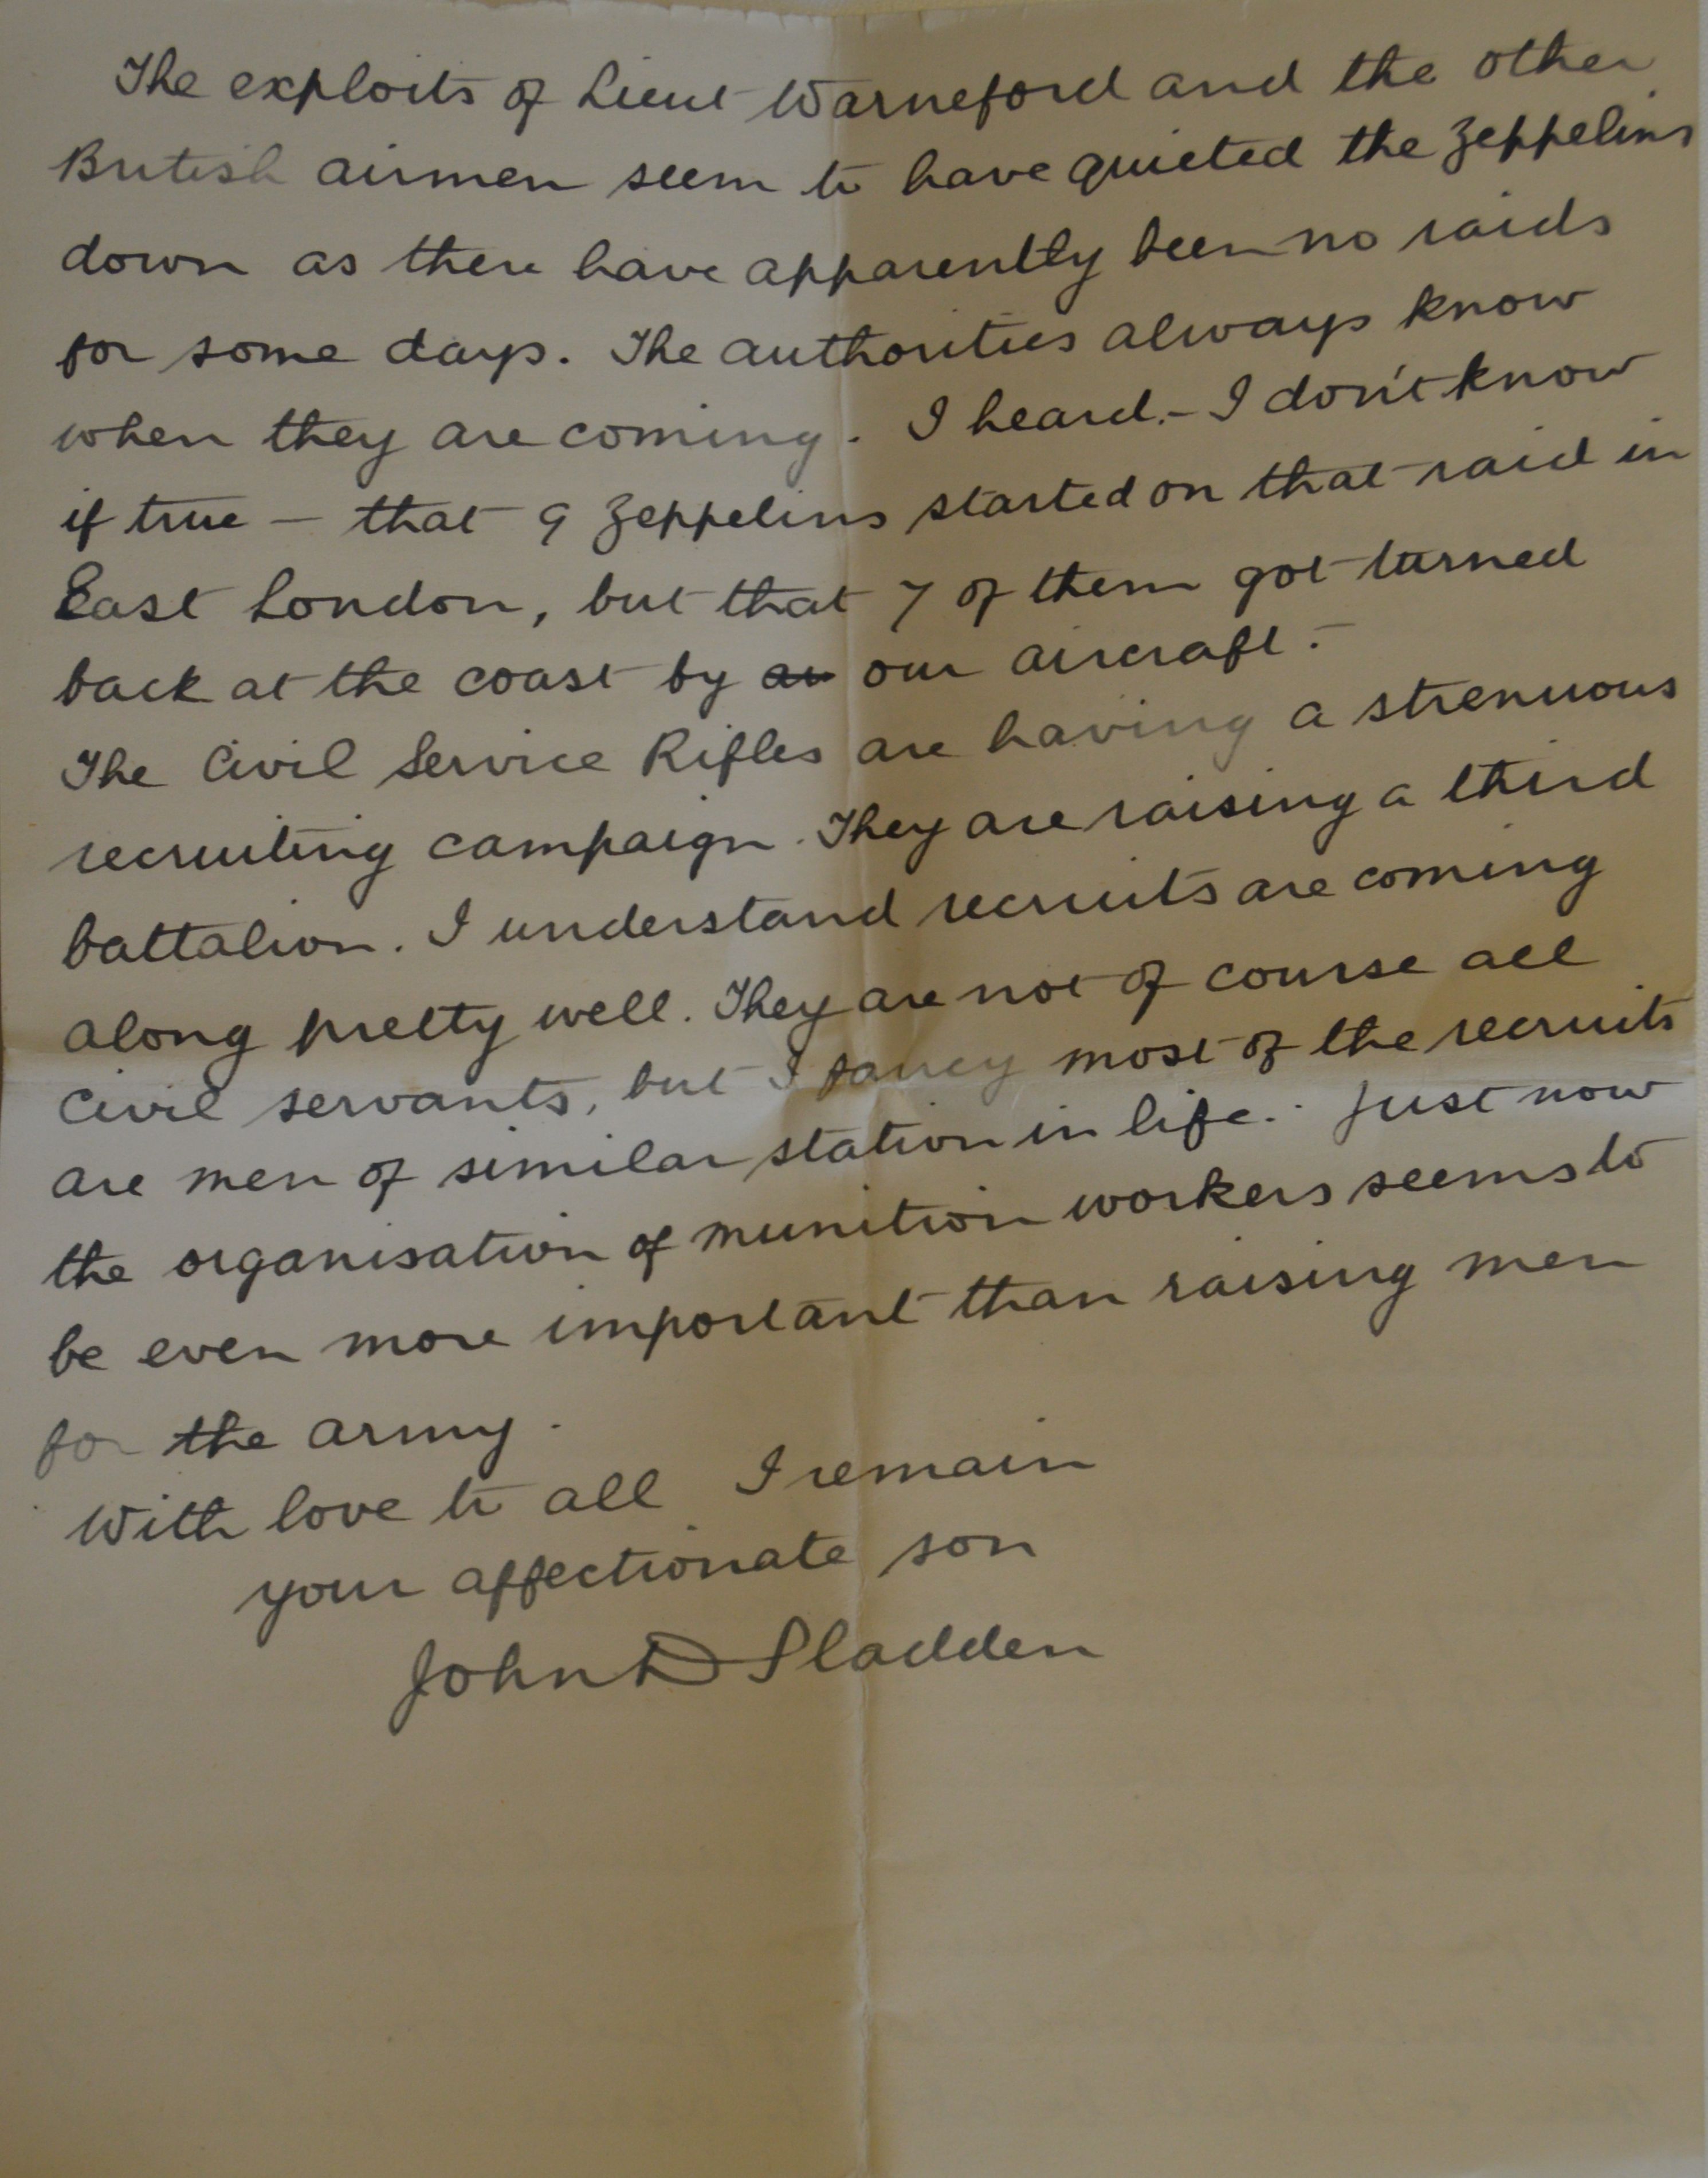 The exploits of Lieut Warneford and the other
British airmen seem to have quieted the Zeppelins
down as there have apparently been no raids
for some days. The authorities always know
when they are coming. I heard. - I don't know
if true — that 9 Zeppelins started on that raid in
East London, but that 7 of them got turned
back at the coast by our aircraft. -
The Civil Service Rifles are having a strenuous
recruiting campaign. They are raising a third
battalion. I understand recruits are coming
along pretty well. They are not of course all
civil servants, but I fancy most of the recruits
are men of similar station in life. Just now
the organisation of munition workers seems to
be even more important than raising men
for the army.
With love to all I remain
your affectionate son
John D Sladden